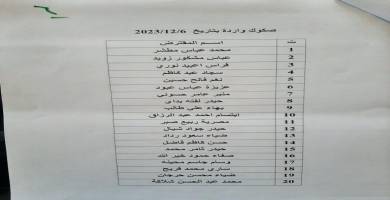 صكوك واردة بتاريخ 2023/12/6
ت اسم المقترض
1 محمد عباس مطشر
2 عباس مشكور زويد
3 فراس اعبيد نوري
4 سجاد عبد كاظم
5 نغم فالح حسين
6 عزيزة عباس عبود
7 منير عامر حسوني
8 حيدر لفته بداي
9 بهاء علي طالب
10 ابتسام احمد عبد الرزاق
11 مصرية ربيع صبر
12 حيدر جواد شيال
13 ضياء سعود رداد
14 حسن كاظم فاضل
15 حيدر ثامر محمد
16 صفاء حمود خير الله
17 وسام جاسم محيبه
18 ساري محمد فريح
19 ضياء محسن حرجان
20 محمد عبد الحسن شلاكة